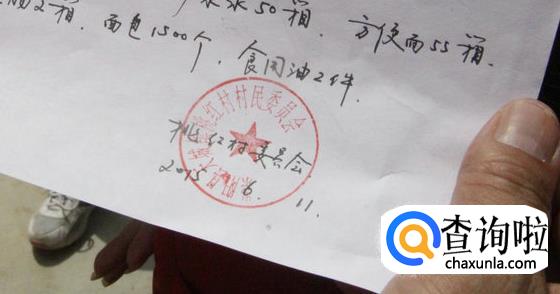 2箱,面包1500个,食用油2件.
水50箱,方便面55箱.
桃红村村民委员会
桃红村委员会
2015.6.11.
查询啦
chaxunla.com